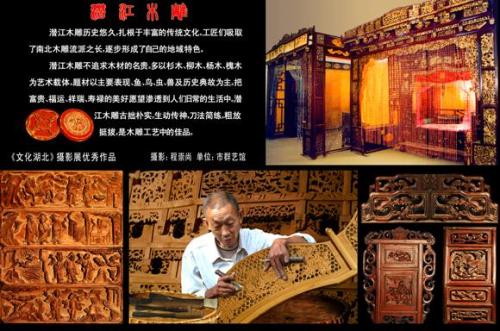 潜江木雕
潜江木雕历史悠久,扎根于丰富的传统文化,工匠们吸取
了南北木雕流派之长,逐步形成了自己的地域特色。
潜江木雕不追求木材的名贵,多以杉木、柳木、杨木、槐木
为艺术载体,题材以主要表现、鱼、鸟、虫、兽及历史典故为主,把
富贵、福运、祥瑞、寿禄的美好愿望渗透到人们日常的生活中,潜
江木雕古拙朴实,生动传神,刀法简练,粗放
挺拔,是木雕工艺中的佳品。
《文化湖北》摄影展优秀作品 摄影:程崇尚 单位:市群艺馆